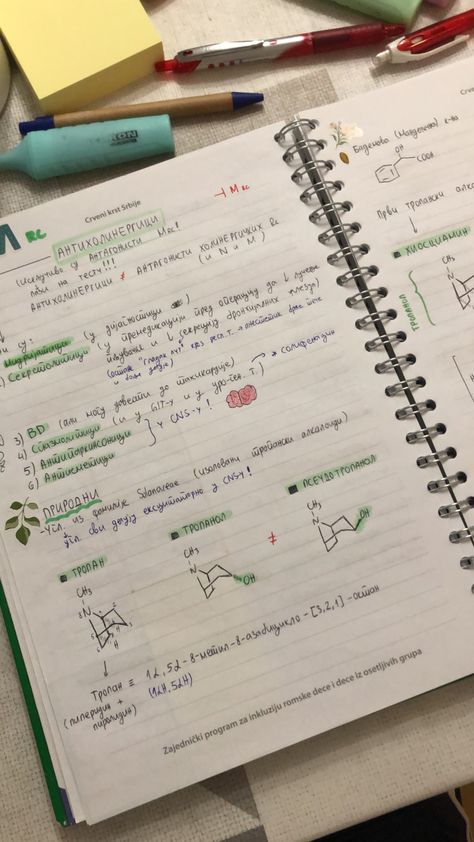 Crveni krst Srbije
→ M Rc
M RC
АНТИХОЛИНЕРГИЦИ
(искључиво су АНТАГОНИСТИ MRC!
на тесту!!!
АНТИХОЛИНЕРГИЦИ ≠ АНТАГОНИСТИ ХОЛИНЕРГИЧКИХ RC
(и N и M)
су:
Мидријатици (у дијагностици)
Секретолитици (у премедикацији пред операцију да ↓ лучење
пљувачке и ↓ секрецију бронхијалних жлезда)
3) BD (али могу довести до тахикардије)
4) Спазмолитици (и у GIT-у и у уро-ген. т.) → * солифенацин
5) Антипаркинсоници
6) Антиеметици
} у CNS-у!
ПРИРОДНИ
- из фамилије Solanaceae (изоловани тропански алкалоиди)
сви делују ексцитаторно у CNSу!
ТРОПАН
ТРОПАНОЛ
ПСЕУДОТРОПАНОЛ
CH3
N
CH3
N
OH
≠
CH3
N
OH
8 N
H
H
↓
Тропан ≡ 1α,5α-8-метил-8-азабицикло-[3,2,1]-октан
(пиперидин + (1αH,5αH)
пиролидин)
Zajednički program za inkluziju romske dece i dece iz osetljivih grupa
Crve
Бадемова (Манделична) к-на
OH
COOH
Први тропански алка
↓
ХИОСЦИАМИН
CH
N
ТРОПАНОЛ